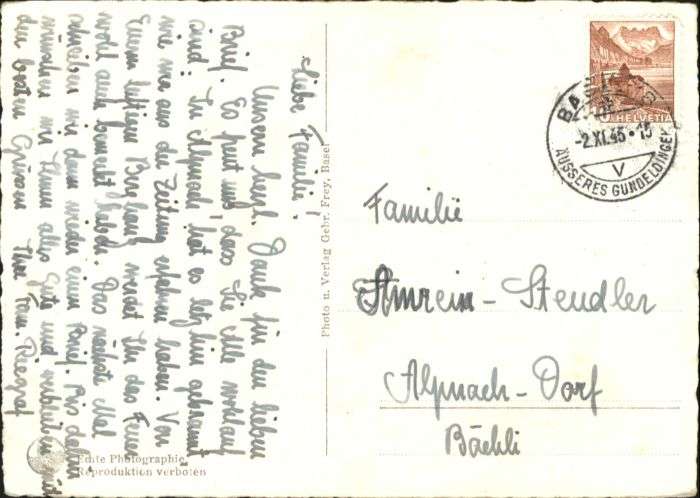 Liebe Familie!
Unsern herzl. Dank für den lieben
Brief. Es freut uns, dass Sie Alle wohlauf
sind. In Alpnach hat es letzthin gebrannt
wie wir aus der Zeitung erfahren haben. Von
Eurem lieben Berghang werdet Ihr das Feuer
wohl auch bemerkt haben. Das nächste Mal
schreiben wir dann wieder einen Brief. Bis dahin
wünschen wir Ihnen alles Gute und verbleiben mit
den besten Grüssen Ihre Fam. Riegraf
Photo u. Verlag Gebr. Frey, Basel
Echte Photographie
Reproduktion verboten
HELVETIA
BASEL
-2.XI.45•15
V
ÄUSSERES GUNDELDINGEN
Familie
Amrein-Stendler
Alpnach-Dorf
Bächli